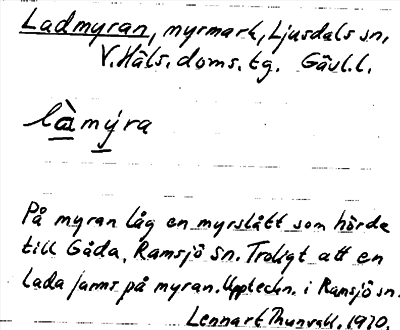 Ladmyran, myrmark, Ljusdals sn,
V. Häls. doms. tg. Gävl.l.
là mýra
På myran låg en myrslått som hörde
till Gåda, Ramsjö sn. Troligt att en
lada fanns på myran. Uppteckn. i Ramsjö sn.
Lennart Thunvall. 1970.